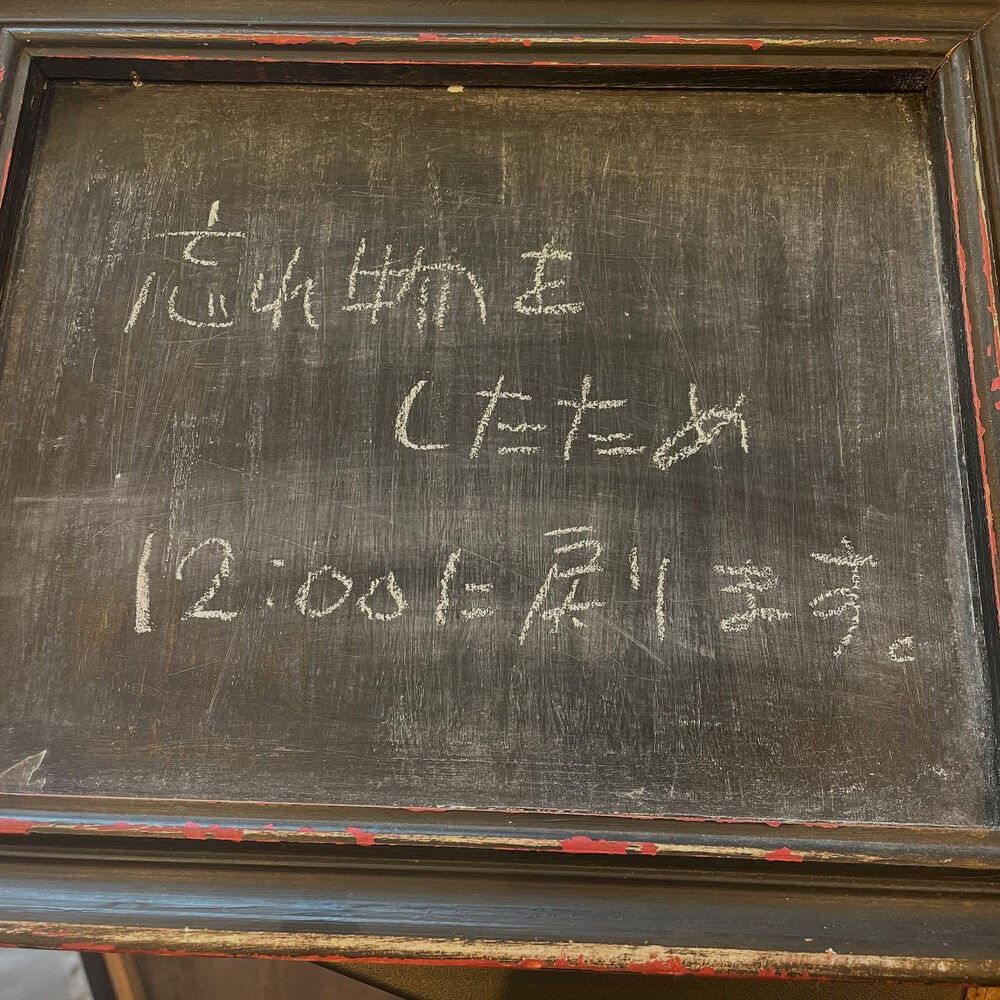 忘れ物を
したため
12:00に戻ります。